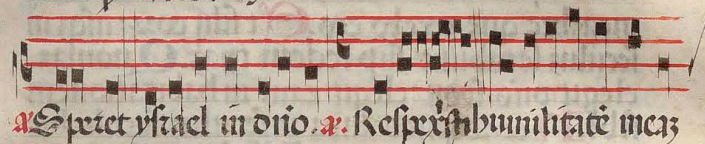 a. Speret ysrael in dño. a. Respexisti humilitatẽ meaʒ